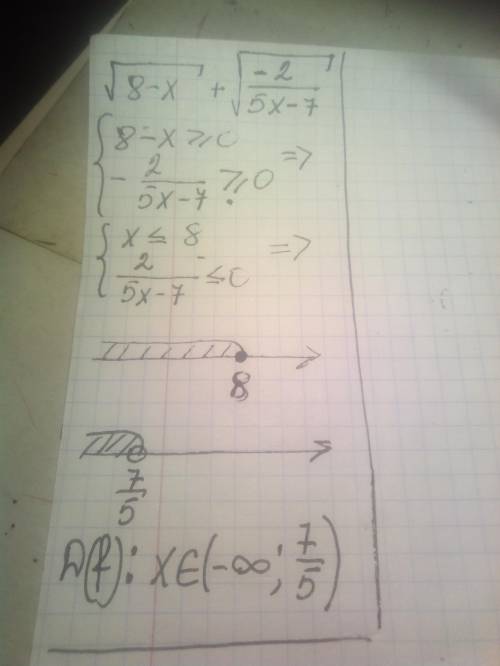 √(8-x) + √(-2/(5x-7))
{ 8-x ≥ 0
{ -2/(5x-7) ≥ 0 =>
{ x ≤ 8
{ 2/(5x-7) ≤ 0 =>
8
7/5
D(f): x∈(-∞; 7/5)